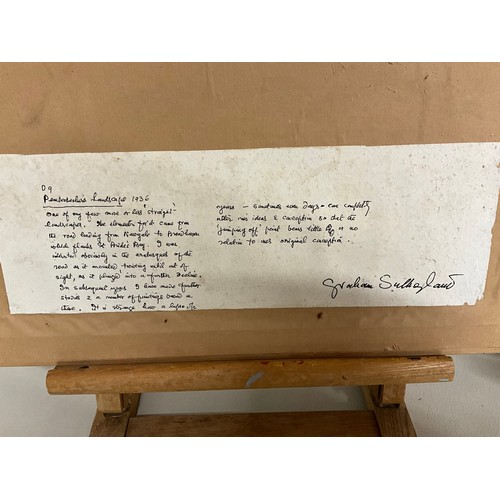 D9
Pembrokeshire Landscape 1936
One of my few more or less 'straight'
landscapes. The elements for it came from
the road leading from to
which flanks St Bride's Bay. I was
interested obviously in the of the
road as it mounted, twisting until out of
sight, as it plunged into a further decline.
In subsequent years I have made further
studies & a number of paintings on a
theme. It is strange how a lapse of
years – sometimes even days – can completely
alter one's ideas & conception so that the
'jumping off' point bears little or no
relation to one's original conception.
Graham Sutherland